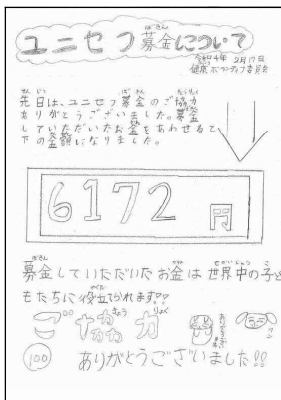 ユニセフ募金について
令和4年 2月17日
健康ボランティア委員会
先日は、ユニセフ募金のご協力
ありがとうございました。募金
していただいたお金をあわせると
下の金額になりました。
6172円
募金していただいたお金は世界中の子ど
もたちに役立てられます♡♡
ご 力
ワン
100 ありがとうございました!!